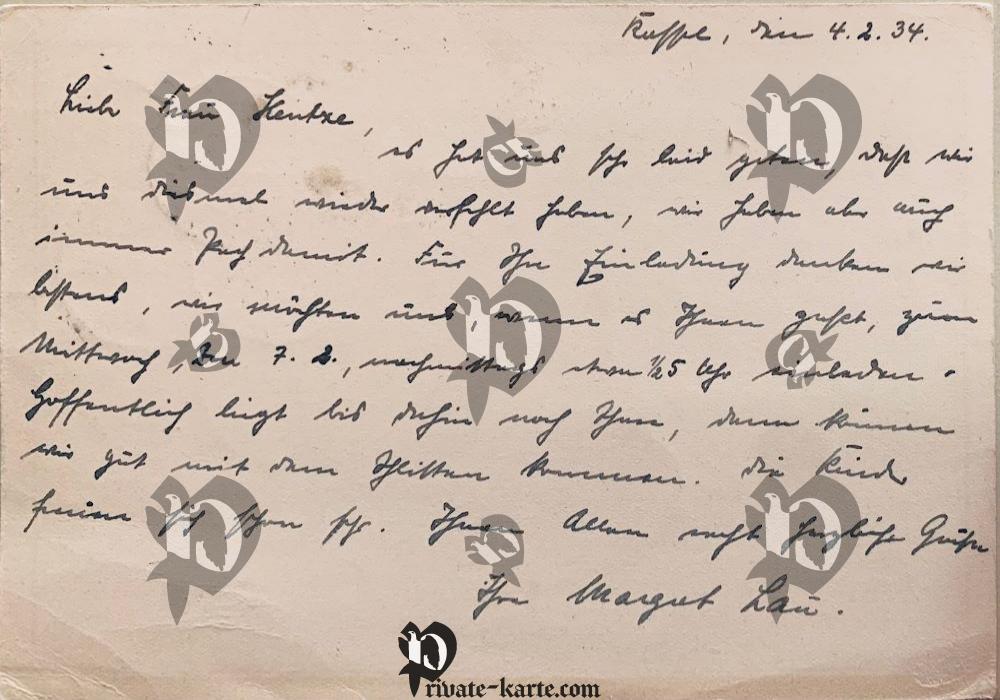 Kassel, den 4. 2. 34.
Liebe Frau Hentze,
es hat uns sehr leid getan, daß wir
uns diesmal wieder verfehlt haben, wir haben aber auch
immer Pech damit. Für Ihre Einladung danken wir
bestens, wir möchten uns, wenn es Ihnen paßt, zum
Mittwoch, den 7. 2., nachmittags etwa 1/2 5 Uhr einladen.
Hoffentlich liegt bis dahin noch Schnee, dann können
wir gut mit dem Schlitten kommen. Die Kinder
freuen sich schon sehr. Ihnen Allen recht herzliche Grüße
Ihre Margret Lau.
Private-karte.com